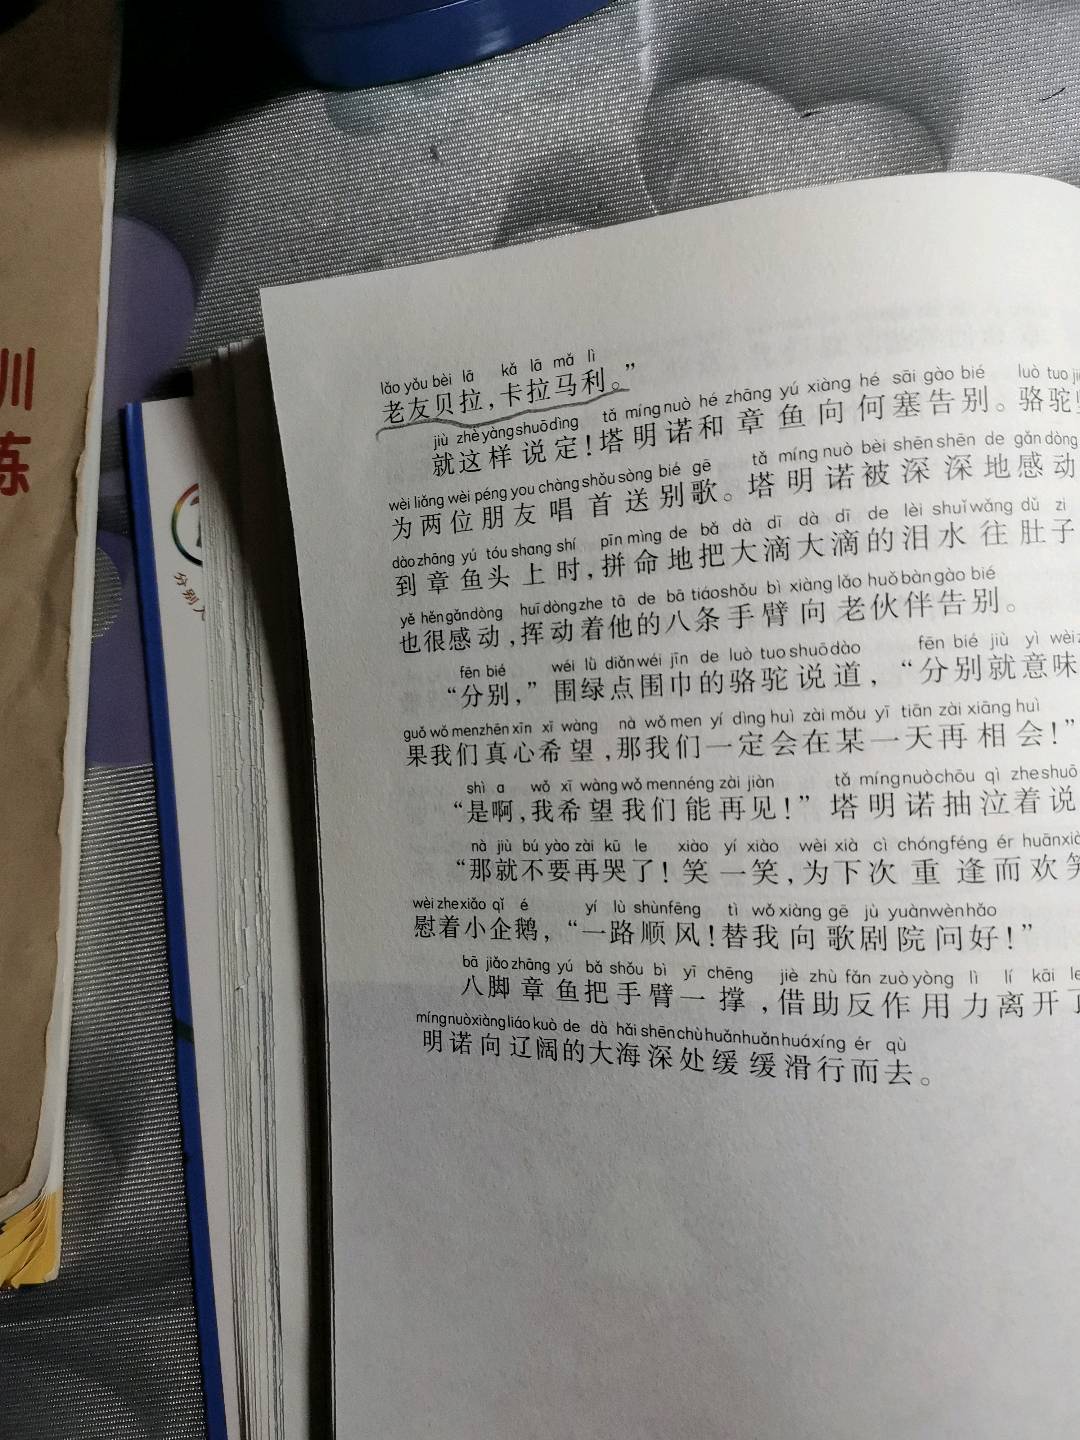 训
练
分别
lǎo yǒu bèi lā kǎ lā mǎ lì
老友贝拉，卡拉马利。”
jiù zhè yàng shuō dìng tǎ míng nuò hé zhāng yú xiàng hé sāi gào bié luò tuo
就这样说定！塔明诺和章鱼向何塞告别。骆驼
wèi liǎng wèi péng you chàng shǒu sòng bié gē tǎ míng nuò bèi shēn shēn de gǎn dòng
为两位朋友唱首送别歌。塔明诺被深深地感动
dào zhāng yú tóu shang shí pīn mìng de bǎ dà dī dà dī de lèi shuǐ wǎng dǔ zi
到章鱼头上时，拼命地把大滴大滴的泪水往肚子
yě hěn gǎn dòng huī dòng zhe tā de bā tiáo shǒu bì xiàng lǎo huǒ bàn gào bié
也很感动，挥动着他的八条手臂向老伙伴告别。
fēn bié wéi lǜ diǎn wéi jīn de luò tuo shuō dào fēn bié jiù yì wèi
“分别，”围绿点围巾的骆驼说道，“分别就意味
guǒ wǒ men zhēn xīn xī wàng nà wǒ men yí dìng huì zài mǒu yī tiān zài xiāng huì
果我们真心希望，那我们一定会在某一天再相会！”
shì a wǒ xī wàng wǒ men néng zài jiàn tǎ míng nuò chōu qì zhe shuō
“是啊，我希望我们能再见！”塔明诺抽泣着说
nà jiù bú yào zài kū le xiào yí xiào wèi xià cì chóng féng ér huān
“那就不要再哭了！笑一笑，为下次重逢而欢笑
wèi zhe xiǎo qǐ é yí lù shùn fēng tì wǒ xiàng gē jù yuàn wèn hǎo
慰着小企鹅，“一路顺风！替我向歌剧院问好！”
bā jiǎo zhāng yú bǎ shǒu bì yī chēng jiè zhù fǎn zuò yòng lì lí kāi le
八脚章鱼把手臂一撑，借助反作用力离开了
míng nuò xiàng liáo kuò de dà hǎi shēn chù huǎn huǎn huá xíng ér qù
明诺向辽阔的大海深处缓缓滑行而去。